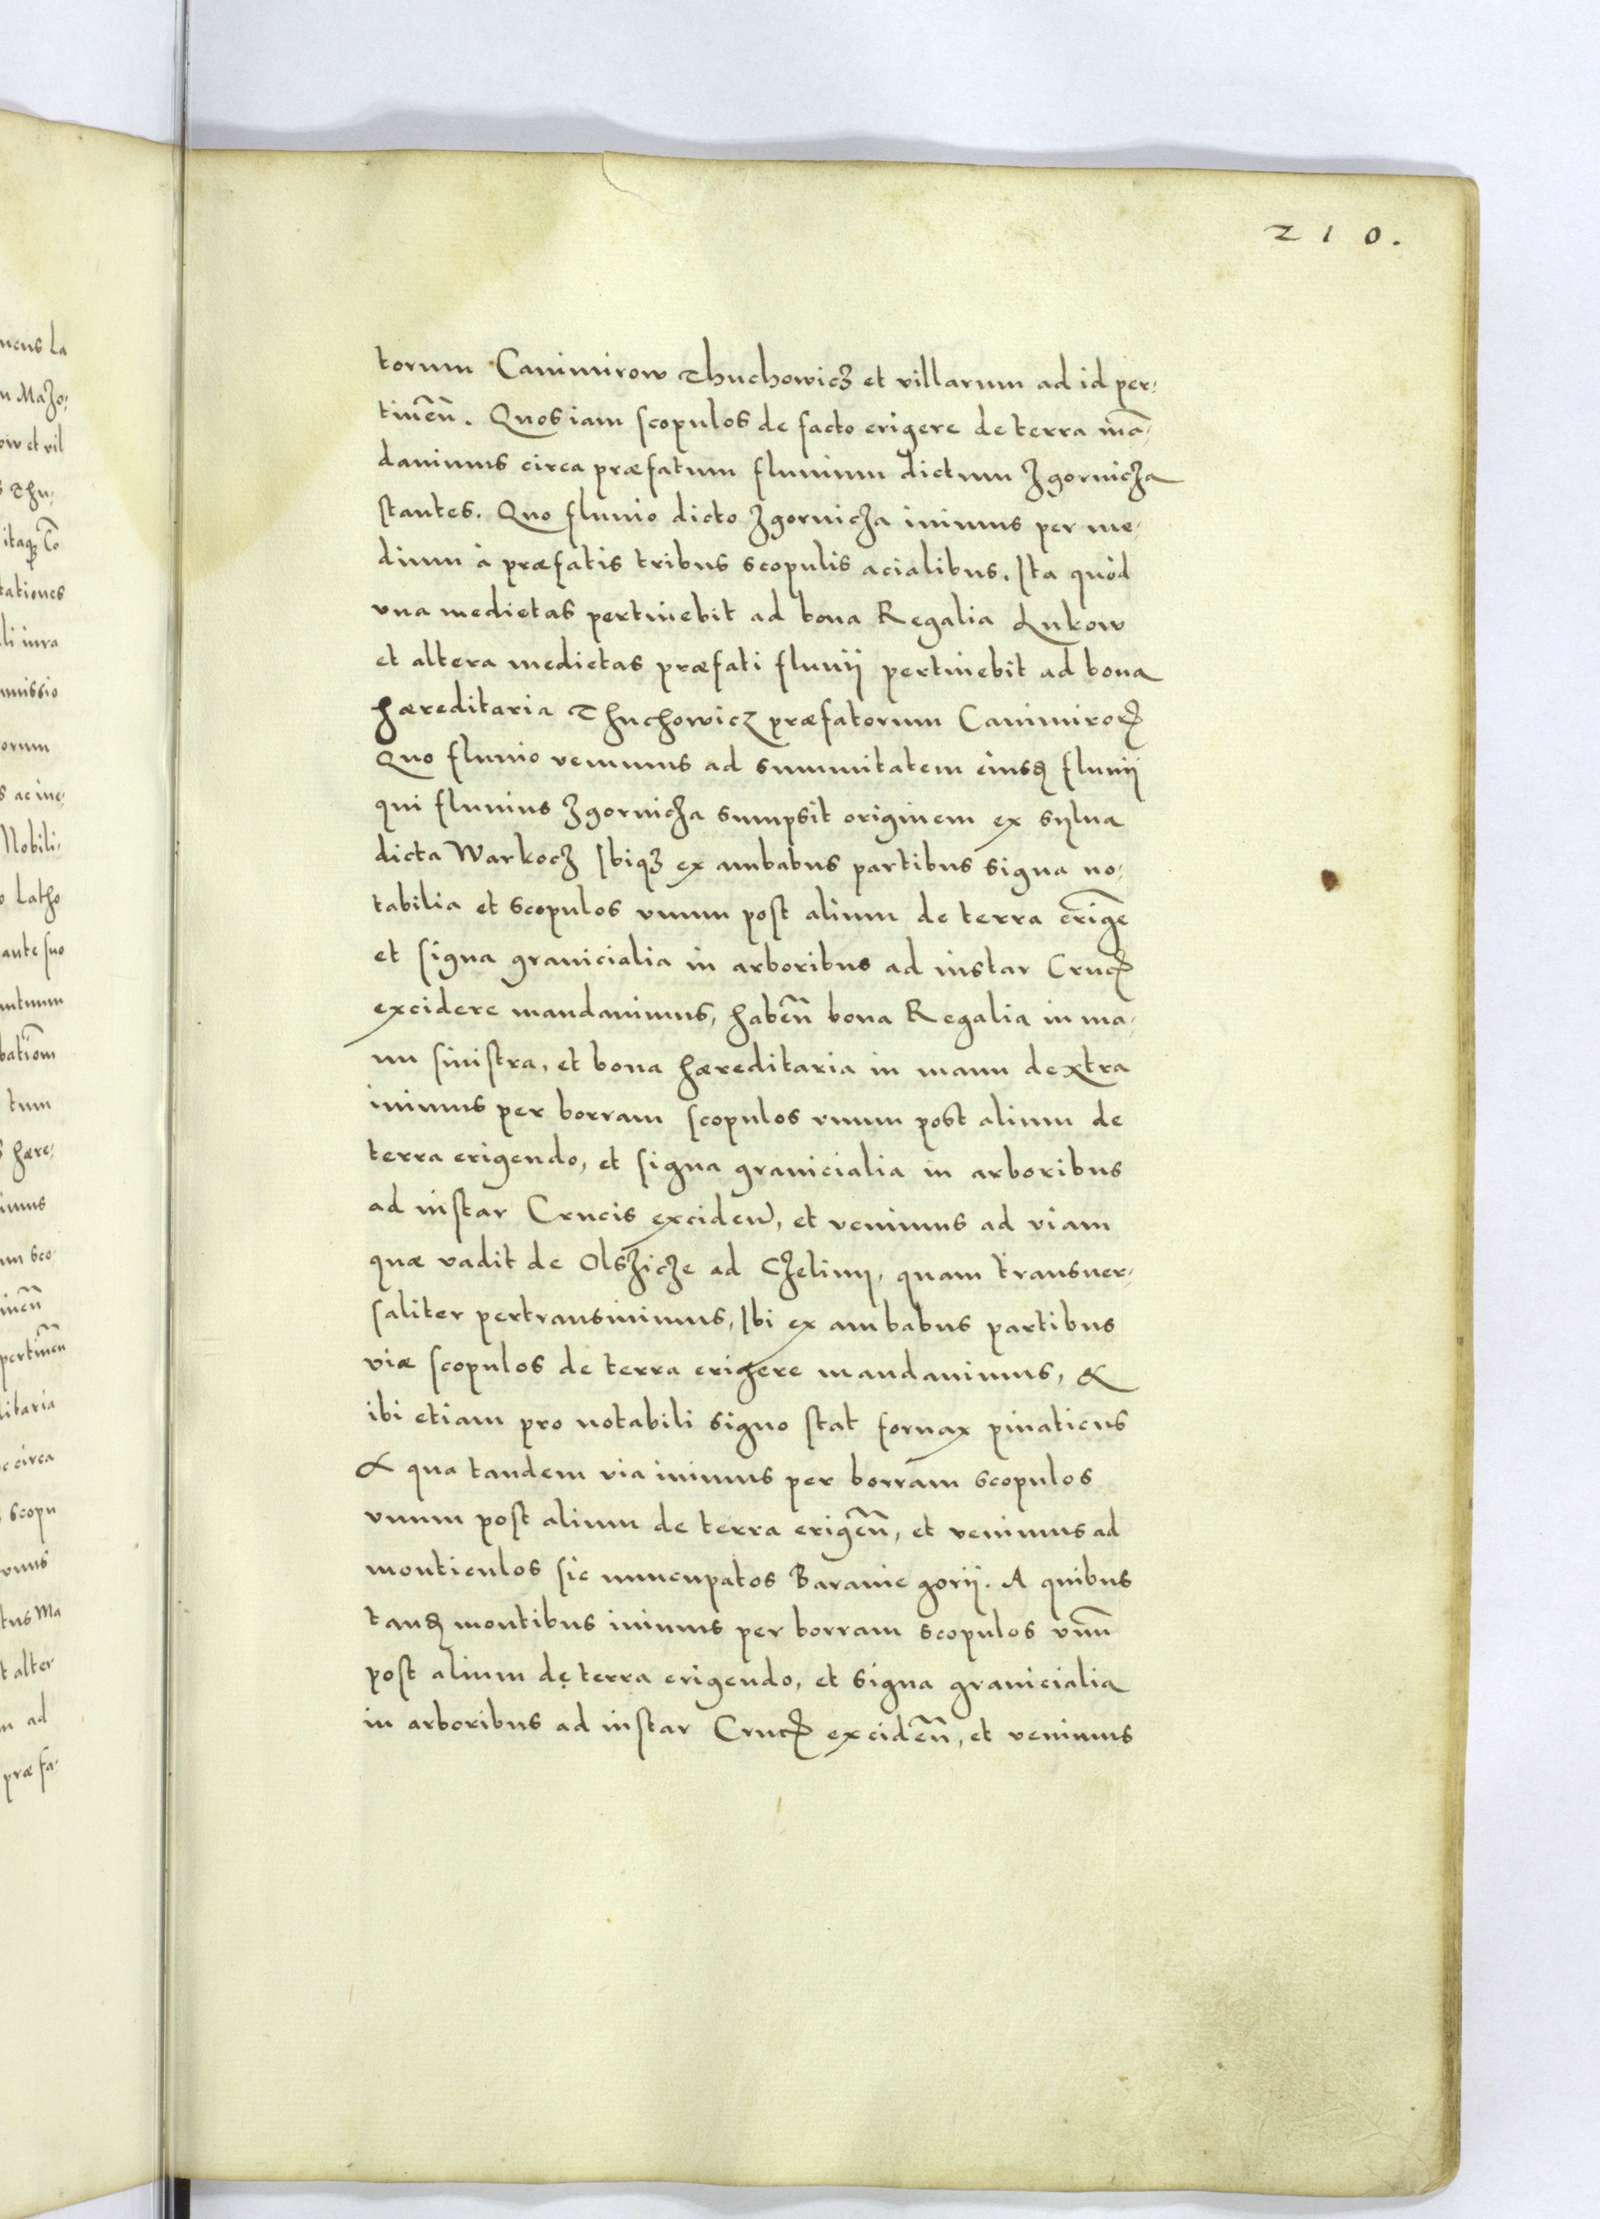 210.
torum Canimirow Thuchowicz et villarum ad id per-
tineñ. Quos iam scopulos de facto erigere de terra mā-
dauimus circa præfatum fluuium dictum Zgornicza
stantes. Quo fluuio dicto Zgornicza iuimus per me-
dium à præfatis tribus scopulis acialibus. Ita quòd
vna medietas pertinebit ad bona Regalia Lukow
et altera medietas præfati fluuij pertinebit ad bona
hæreditaria Thuchowicz præfatorum Canimiroꝝ
Quo fluuio venimus ad summitatem eiusꝺ fluuij
qui fluuius Zgornicza sumpsit originem ex sylua
dicta Warkocz Ibiqꝫ ex ambabus partibus signa no-
tabilia et scopulos vnum post alium de terra erigē
et signa granicialia in arboribus ad instar Crucꝭ
excidere mandauimus, habeñ bona Regalia in ma-
nu sinistra, et bona hæreditaria in manu dextra
iuimus per borram scopulos vnum post alium de
terra erigendo, et signa granicialia in arboribus
ad instar Crucis exciden̄, et venimus ad viam
quæ vadit de Olszicze ad Czelimy, quam transuer-
saliter pertransiuimus, Ibi ex ambabus partibus
viæ scopulos de terra erigere mandauimus, &
ibi etiam pro notabili signo stat fornax pinaticus
A qua tandem via iuimus per borram scopulos
vnum post alium de terra erigeñ, et venimus ad
monticulos sic nuncupatos Baranie gorij. A quibus
tanꝺ montibus iuimus per borram scopulos vnū
post alium de terra erigendo, et signa granicialia
in arboribus ad instar Crucꝭ excideñ, et venimus